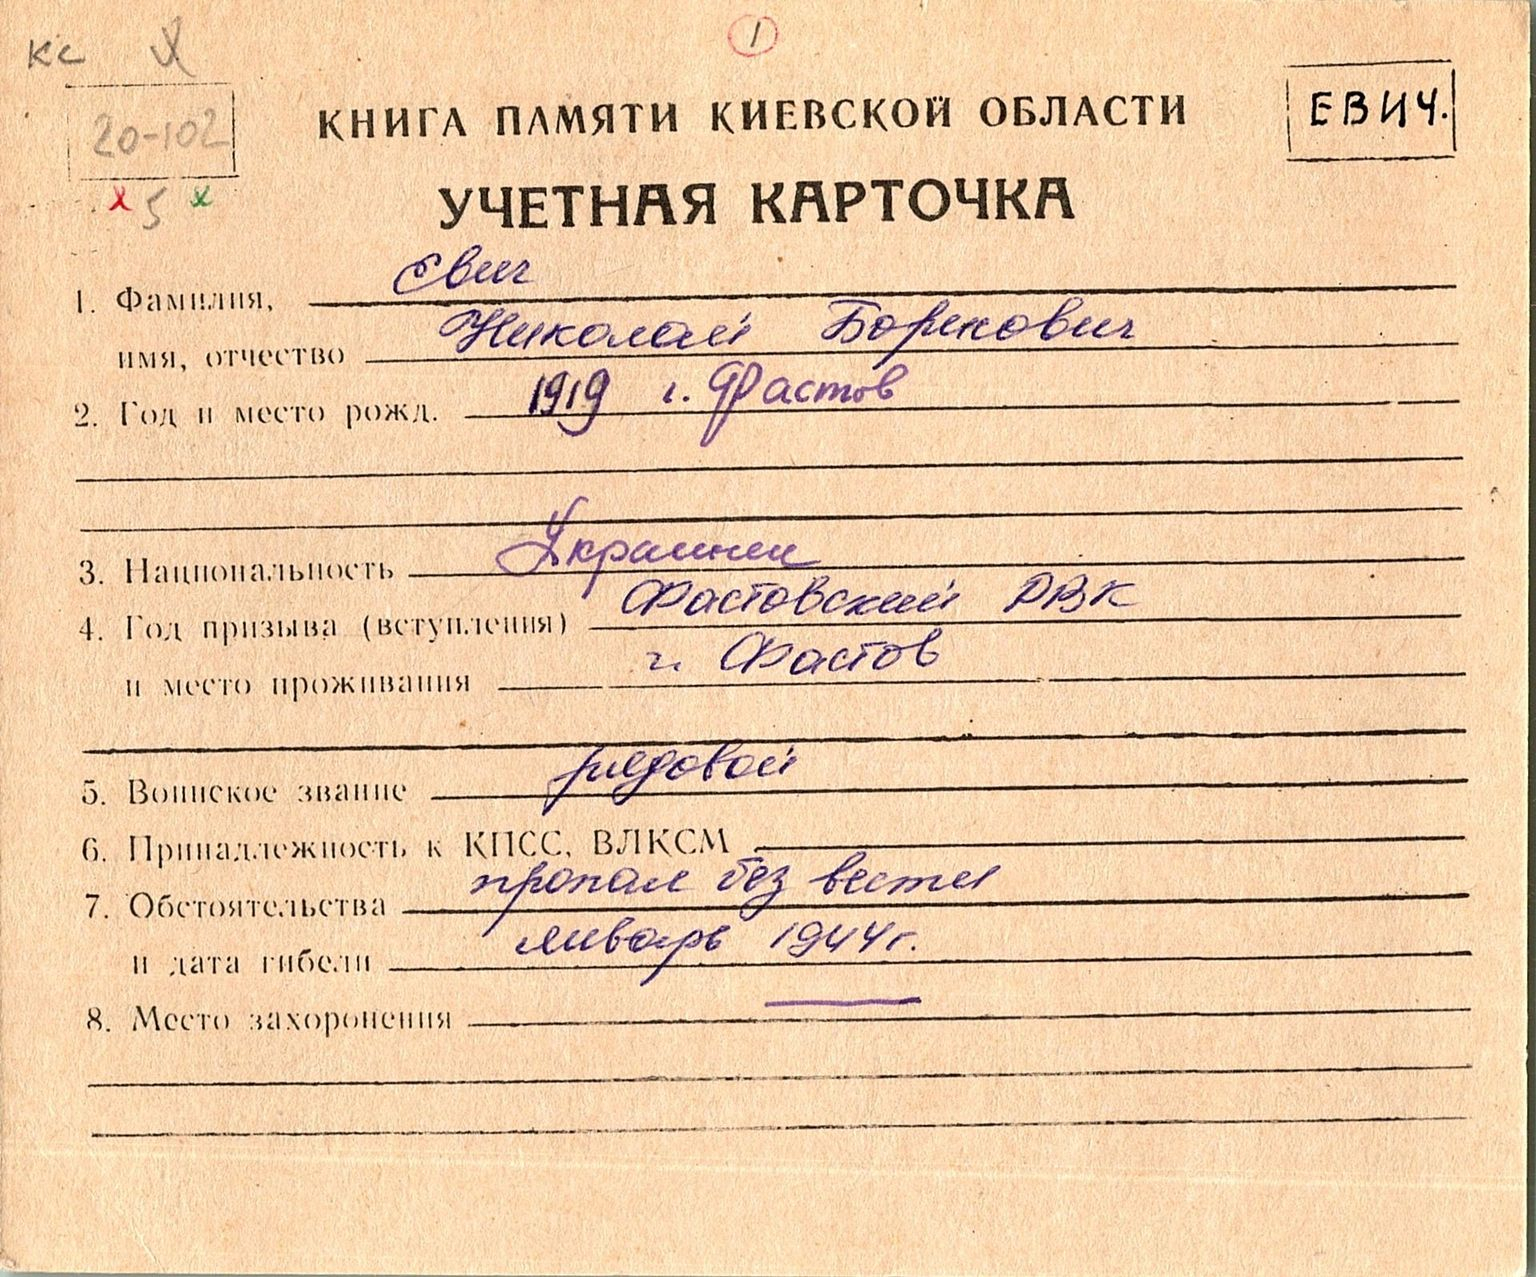 кс
1
20-102
КНИГА ПАМЯТИ КИЕВСКОЙ ОБЛАСТИ
ЕВИЧ.
5
УЧЕТНАЯ КАРТОЧКА
1. Фамилия, Евич
имя, отчество Николай Борисович
2. Год и место рожд. 1919 г. Фастов
3. Национальность Украинец
4. Год призыва (вступления) Фастовский РВК
и место проживания г. Фастов
5. Воинское звание рядовой
6. Принадлежность к КПСС, ВЛКСМ
7. Обстоятельства пропал без вести
и дата гибели январь 1944г.
8. Место захоронения